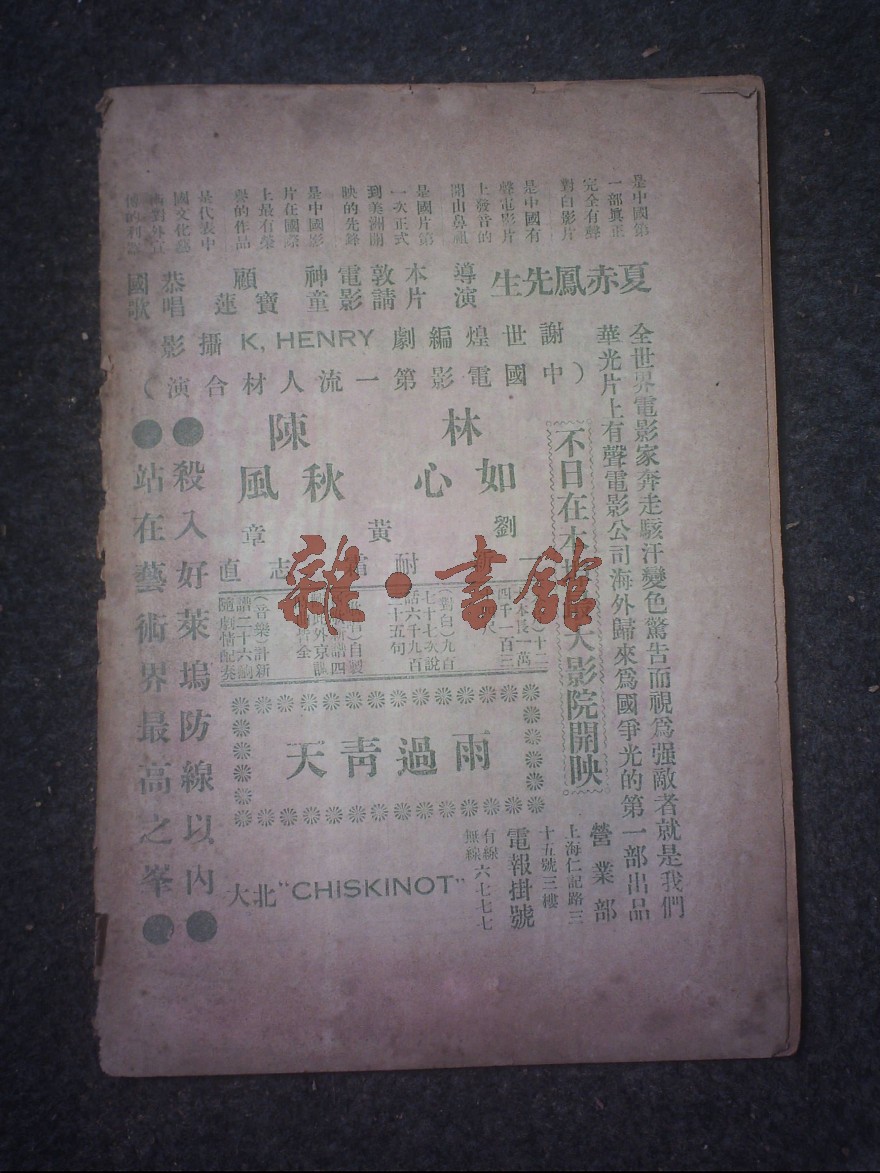 全世界電影家奔走駭汗變色驚告而視爲强敵者就是我們
華光片上有聲電影公司海外歸來爲國爭光的第一部出品
是中國第
一部眞正
完全有聲
對白影片
是中國有
聲電影片
上發音的
開山鼻祖
是國片第
一次正式
到美洲開
映的先鋒
是中國影
片在國際
上最有榮
譽的作品
是代表中
國文化藝
夏赤鳳先生
導演
本片
敦請
電影
神童
顧寶蓮
恭唱
國歌
謝世煌編劇 K, HENRY 攝影
(中國電影第一流人材合演)
不日在本
大影院開映
林如心
陳秋風
劉一
黃耐
章志直
十二
本長一萬
四千一百三
(對白)九百
七十七次說
話六千九百
二十五句
自製
(音樂)計新
譜二十六調
隨劇情配奏
雨過靑天
●殺入好萊塢防線以內●
●站在藝術界最高之峯●
營業部
上海仁記路三
十五號三樓
電報掛號
有線
無線
六七七七
大北"CHISKINOT"
雜·書館